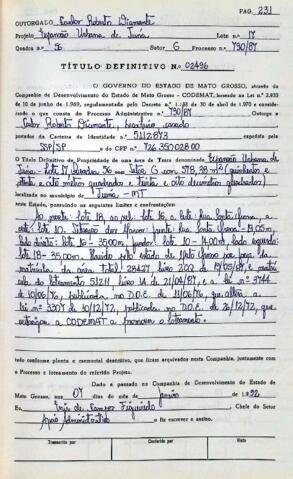 PAG. 231
OUTORGADO, Carlos Roberto Diamante
Projeto Expansão Urbana de Juína Lote nº 17
Quadra nº 56 Setor G Processo nº 730/87
TÍTULO DEFINITIVO N.º 02496
O GOVERNO DO ESTADO DE MATO GROSSO, através da
Companhia de Desenvolvimento do Estado de Mato Grosso - CODEMAT, fundado na Lei nº 2.933
de 10 de junho de 1.969, regulamentado pelo Decreto n.º de 30 de abril de 1970 e considerando
o que consta do Processo Administrativo nº 730/87
Outorga a
Carlos Roberto Diamante, brasileiro, casado
portador da Carteira de Identidade nº 5112873 expedida pela
SSP/SP e do CPF nº 726.350.028.00
O Título Definitivo de Propriedade de uma área de Terra denominada Expansão Urbana de
Juína - Lote 17 Quadra 56 Setor G com 578,38 m² (quinhentos e
setenta e oito metros quadrados e trinta e oito decímetros quadrados)
localizada no município de Juína - MT
neste Estado, possuindo os seguintes limites e confrontações:
Ao norte lote 18, ao sul lote 16, a leste rua
oeste lote 10. Frente rua
lado direito: lote 16 - 35,00m, fundos: lote 10 - 14,00m lado esquerdo
lote 18 - 35,00m. Havido pelo estado de Mato Grosso por
matrícula da área total 28427 livro 2 de 19/05/87, e matrí-
cula do loteamento 51211 livro de 21/04/87, e a lei nº 3744
de 10/06/76, publicada no D.O.E. de 11/06/76, que altera a
lei nº 3307 de 10/12/72, publicada no D.O.E. de 26/12/72, que
autoriza a CODEMAT a promover o loteamento.
tudo conforme planta e memorial descritivo, que ficam arquivados nesta Companhia, juntamente com
o Processo e loteamento do referido Projeto.
Dado e passado na Companhia de Desenvolvimento do Estado de
Mato Grosso, aos 07 dias do mês de janeiro de 1.992
Eu, de Campos Figueiredo Chefe do Setor
Apoio Administrativo o fiz escrever e assino.
Transcrito por Conferido por Visto